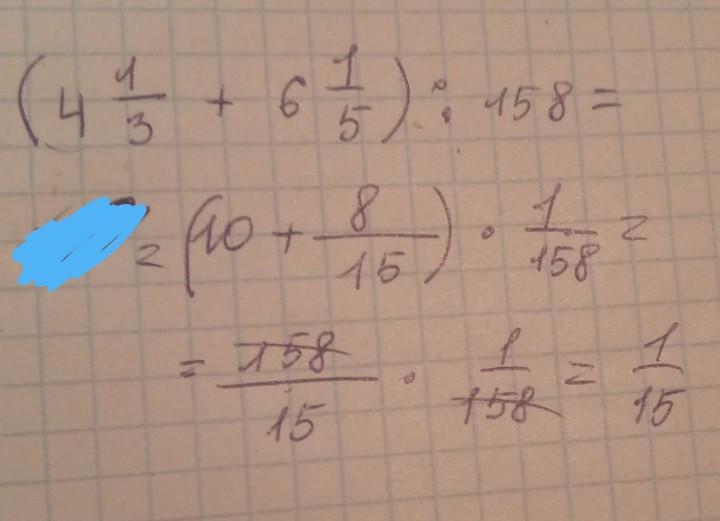 (4 1/3 + 6 1/5) : 158 =
= (10 + 8/15) · 1/158 =
= 158/15 · 1/158 = 1/15